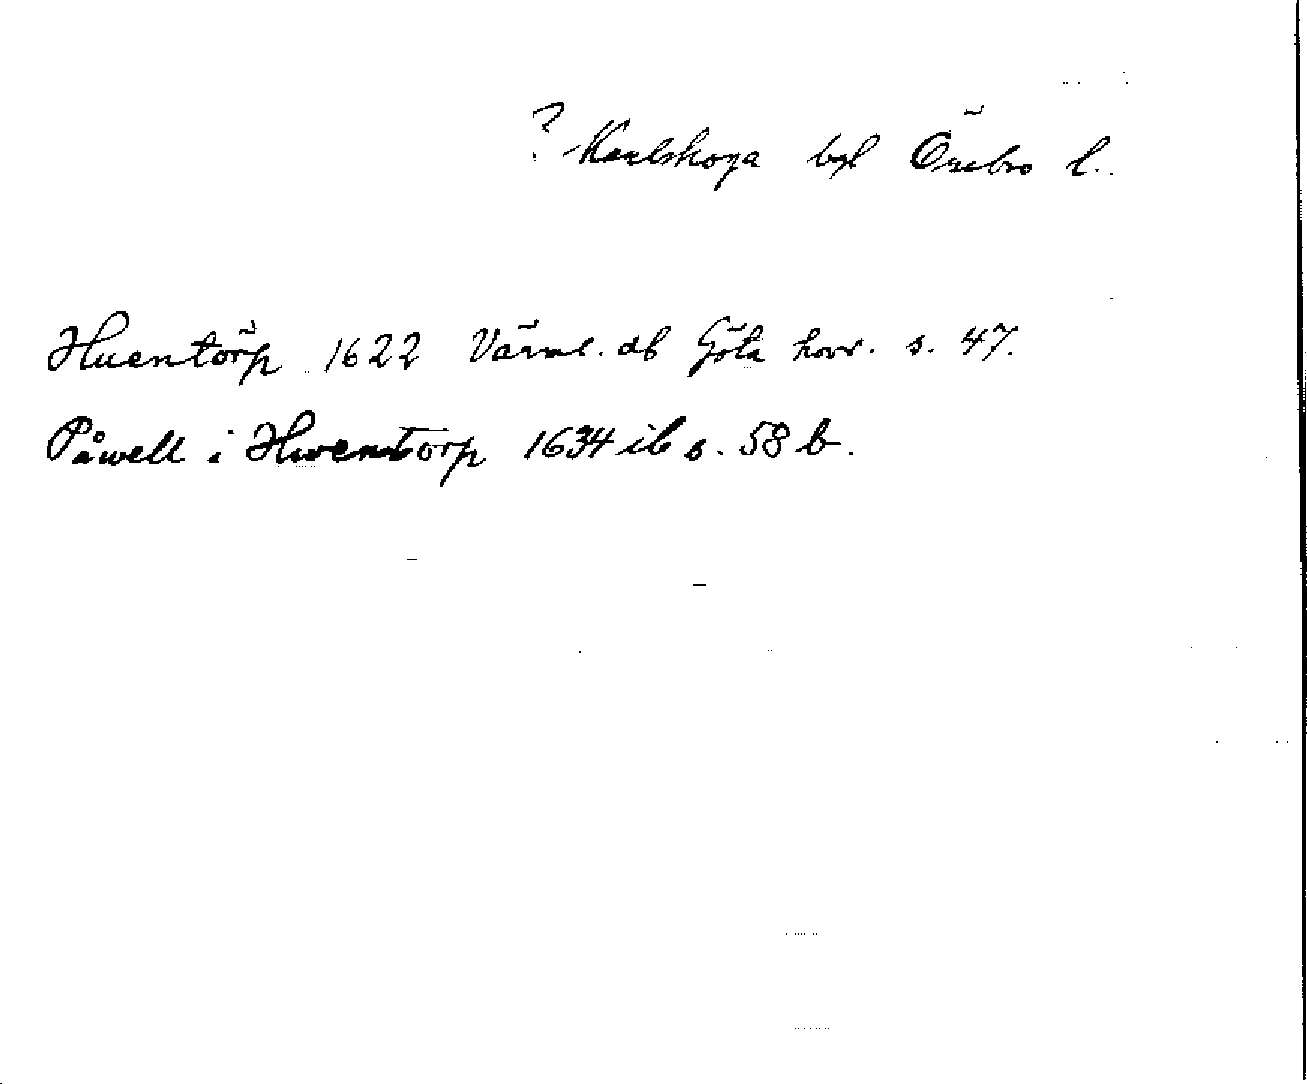 ? Karlskoga bgl Örebro l.
Huentörp 1622 Värml. db Göta hovr. s. 47.
Påwell i Hwentorp 1634 ib s. 58 b.